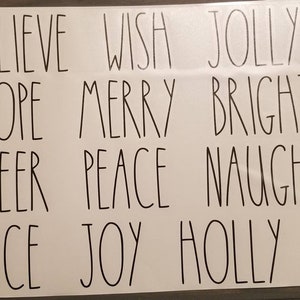 LIEVE WISH JOLLY
OPE MERRY BRIGH
EER PEACE NAUGH
CE JOY HOLLY